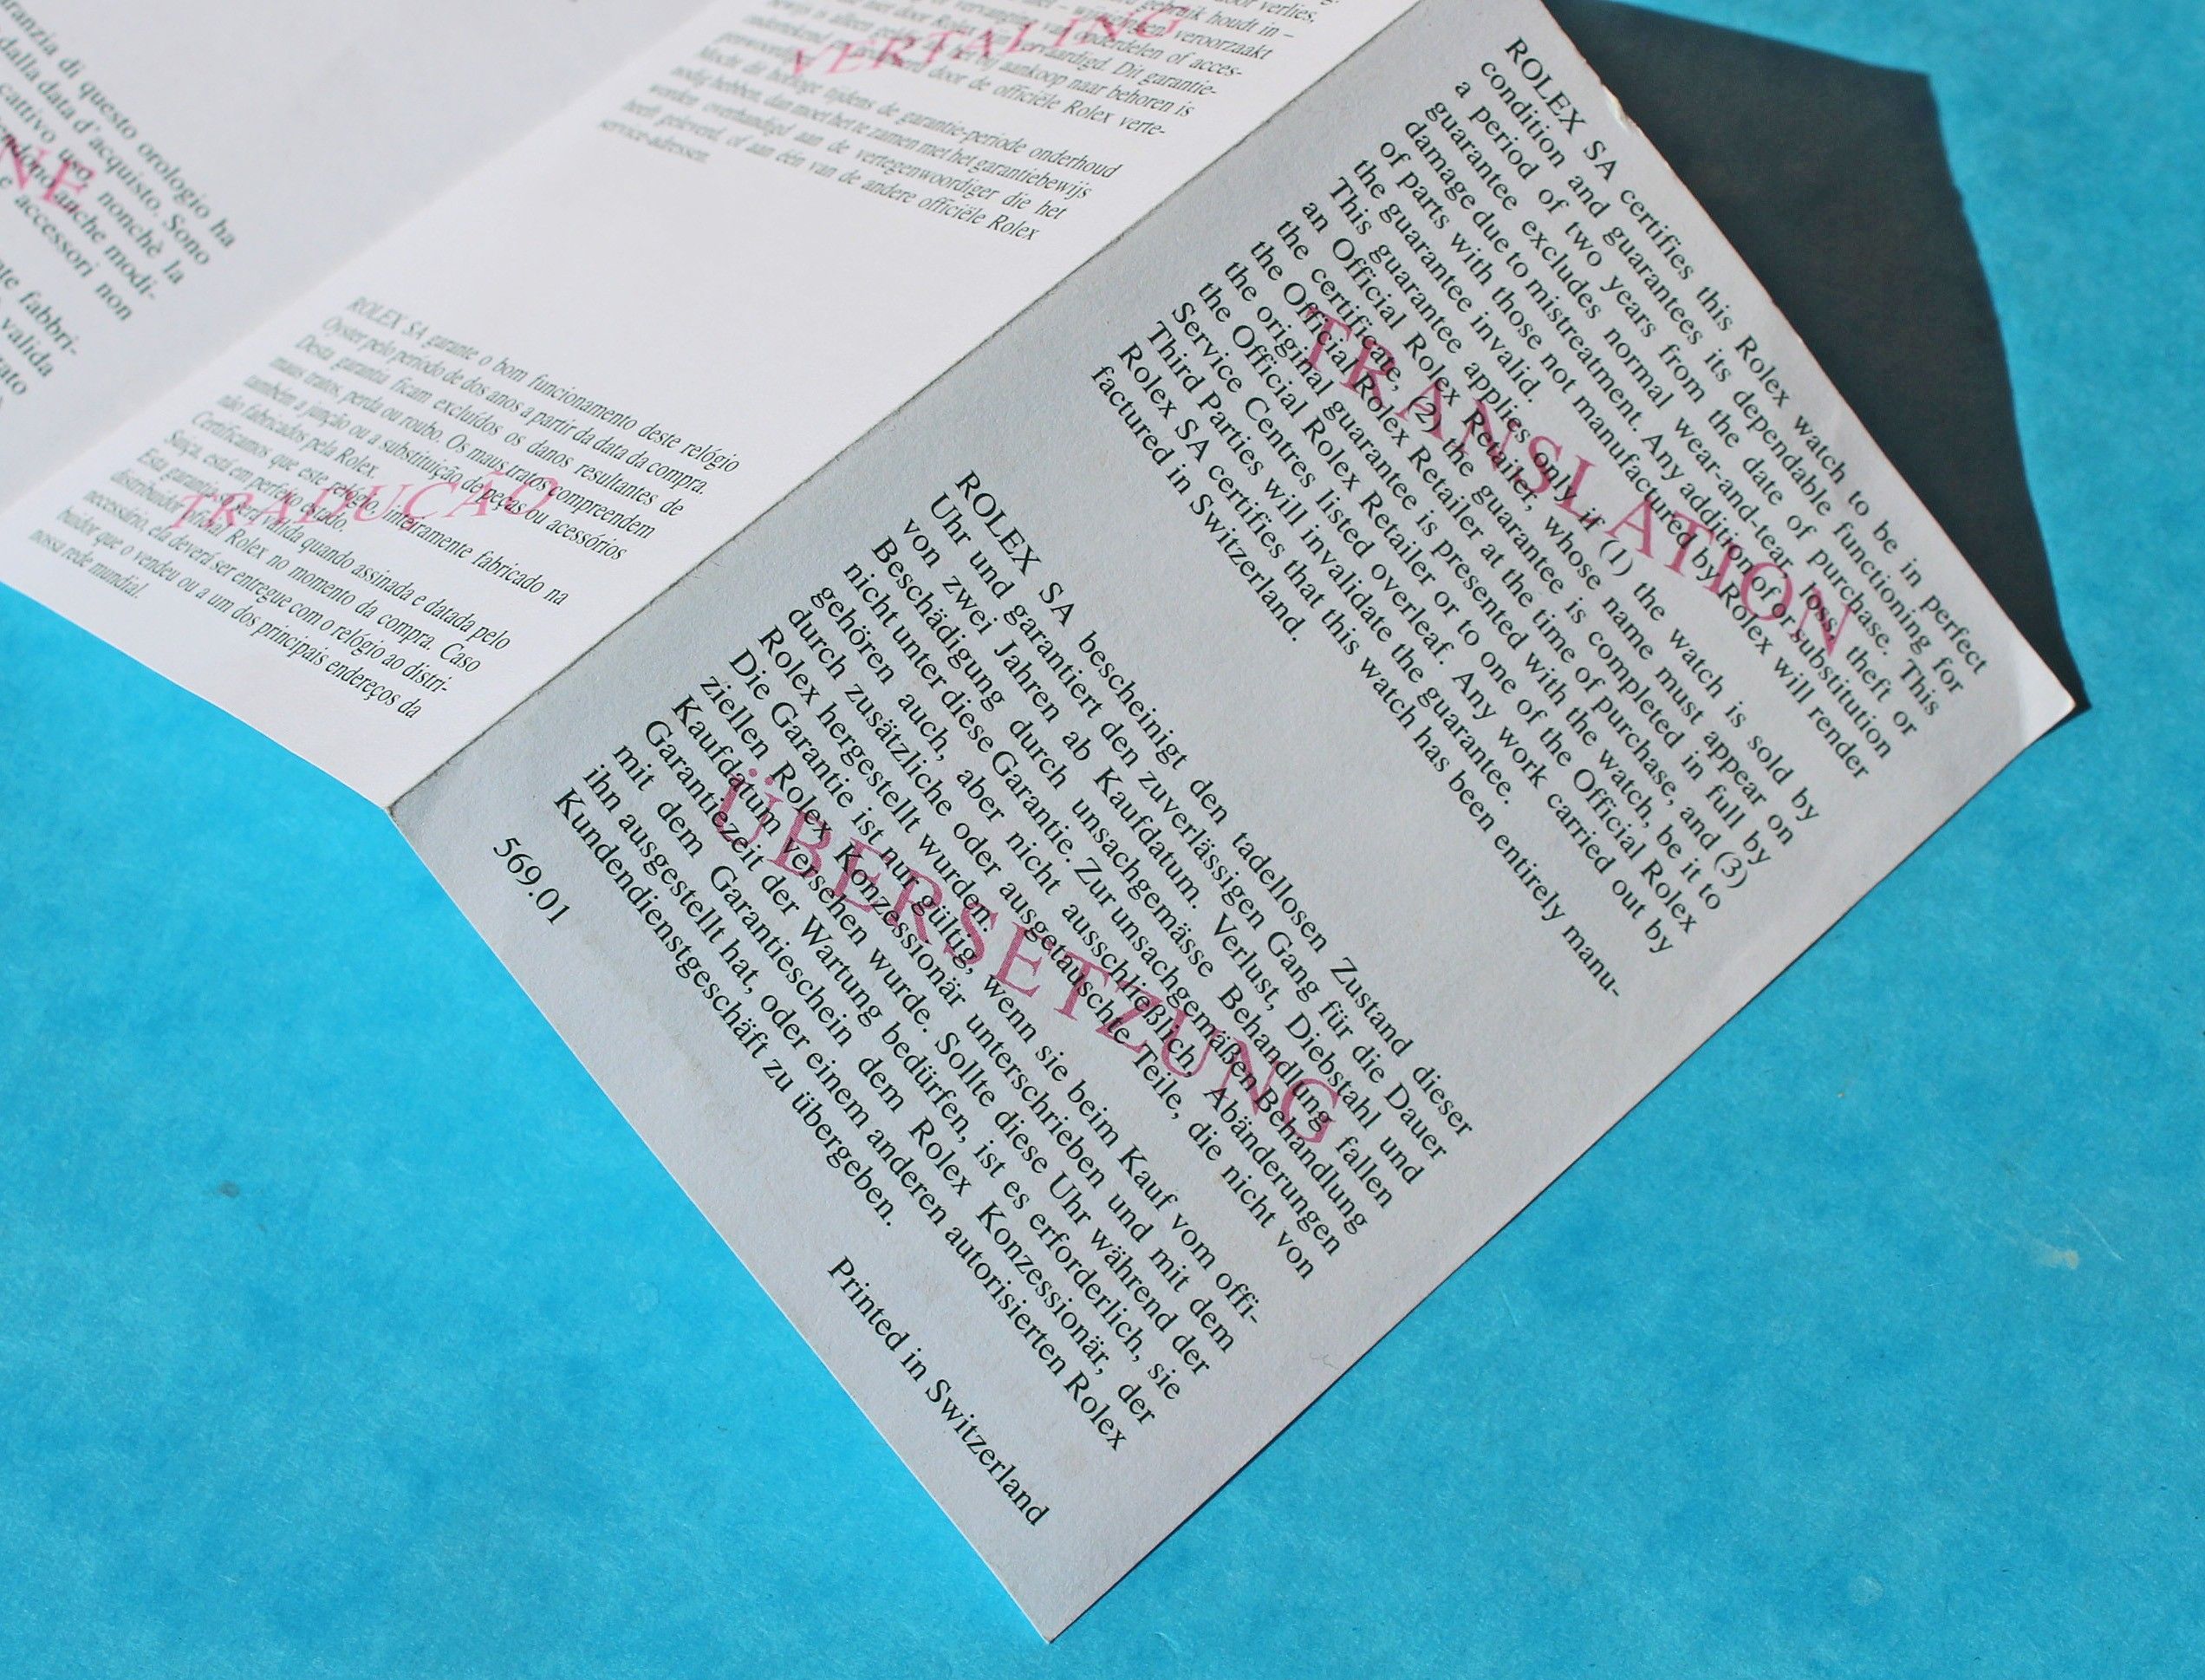 ranzia di questo orologio ha
dalla data d'acquisto. Sono
cattivo uso, nonchè la
anche modi-
e accessori non
te fabbri-
valida
NE
VERTALING
gebruik houdt in –
veroorzaakt
onderdelen of acces-
vervaardigd. Dit garantie-
bij aankoop naar behoren is
door de officiële Rolex verte-
genwoordiger
Mocht dit horloge tijdens de garantie-periode onderhoud
nodig hebben, dan moet het te zamen met het garantiebewijs
worden overhandigd aan de vertegenwoordiger die het
heeft geleverd, of aan één van de andere officiële Rolex
service-adressen.
ROLEX SA garante o bom funcionamento deste relógio
Oyster pelo período de dos anos a partir da data da compra.
Desta garantia ficam excluídos os danos resultantes de
maus tratos, perda ou roubo. Os maus tratos compreendem
também a junção ou a substituição de peças ou acessórios
não fabricados pela Rolex.
Certificamos que este relógio, inteiramente fabricado na
Suiça, está em perfeito estado.
Esta garantia será válida quando assinada e datada pelo
distribuidor oficial Rolex no momento da compra. Caso
necessário, ela deverá ser entregue com o relógio ao distri-
buidor que o vendeu ou a um dos principais endereços da
nossa rede mundial.
TRADUÇÃO
ROLEX SA certifies this Rolex watch to be in perfect
condition and guarantees its dependable functioning for
a period of two years from the date of purchase. This
guarantee excludes normal wear-and-tear, loss, theft or
damage due to mistreatment. Any addition of or substitution
of parts with those not manufactured by Rolex will render
the guarantee invalid.
This guarantee applies only if (1) the watch is sold by
an Official Rolex Retailer, whose name must appear on
the certificate, (2) the guarantee is completed in full by
the Official Rolex Retailer at the time of purchase, and (3)
the original guarantee is presented with the watch, be it to
the Official Rolex Retailer or to one of the Official Rolex
Service Centres listed overleaf. Any work carried out by
Third Parties will invalidate the guarantee.
Rolex SA certifies that this watch has been entirely manu-
factured in Switzerland.
TRANSLATION
ROLEX SA bescheinigt den tadellosen Zustand dieser
Uhr und garantiert den zuverlässigen Gang für die Dauer
von zwei Jahren ab Kaufdatum. Verlust, Diebstahl und
Beschädigung durch unsachgemässe Behandlung fallen
nicht unter diese Garantie. Zur unsachgemäßen Behandlung
gehören auch, aber nicht ausschließlich, Abänderungen
durch zusätzliche oder ausgetauschte Teile, die nicht von
Rolex hergestellt wurden.
Die Garantie ist nur gültig, wenn sie beim Kauf vom offi-
ziellen Rolex Konzessionär unterschrieben und mit dem
Kaufdatum versehen wurde. Sollte diese Uhr während der
Garantiezeit der Wartung bedürfen, ist es erforderlich, sie
mit dem Garantieschein dem Rolex Konzessionär, der
ihn ausgestellt hat, oder einem anderen autorisierten Rolex
Kundendienstgeschäft zu übergeben.
ÜBERSETZUNG
569.01
Printed in Switzerland